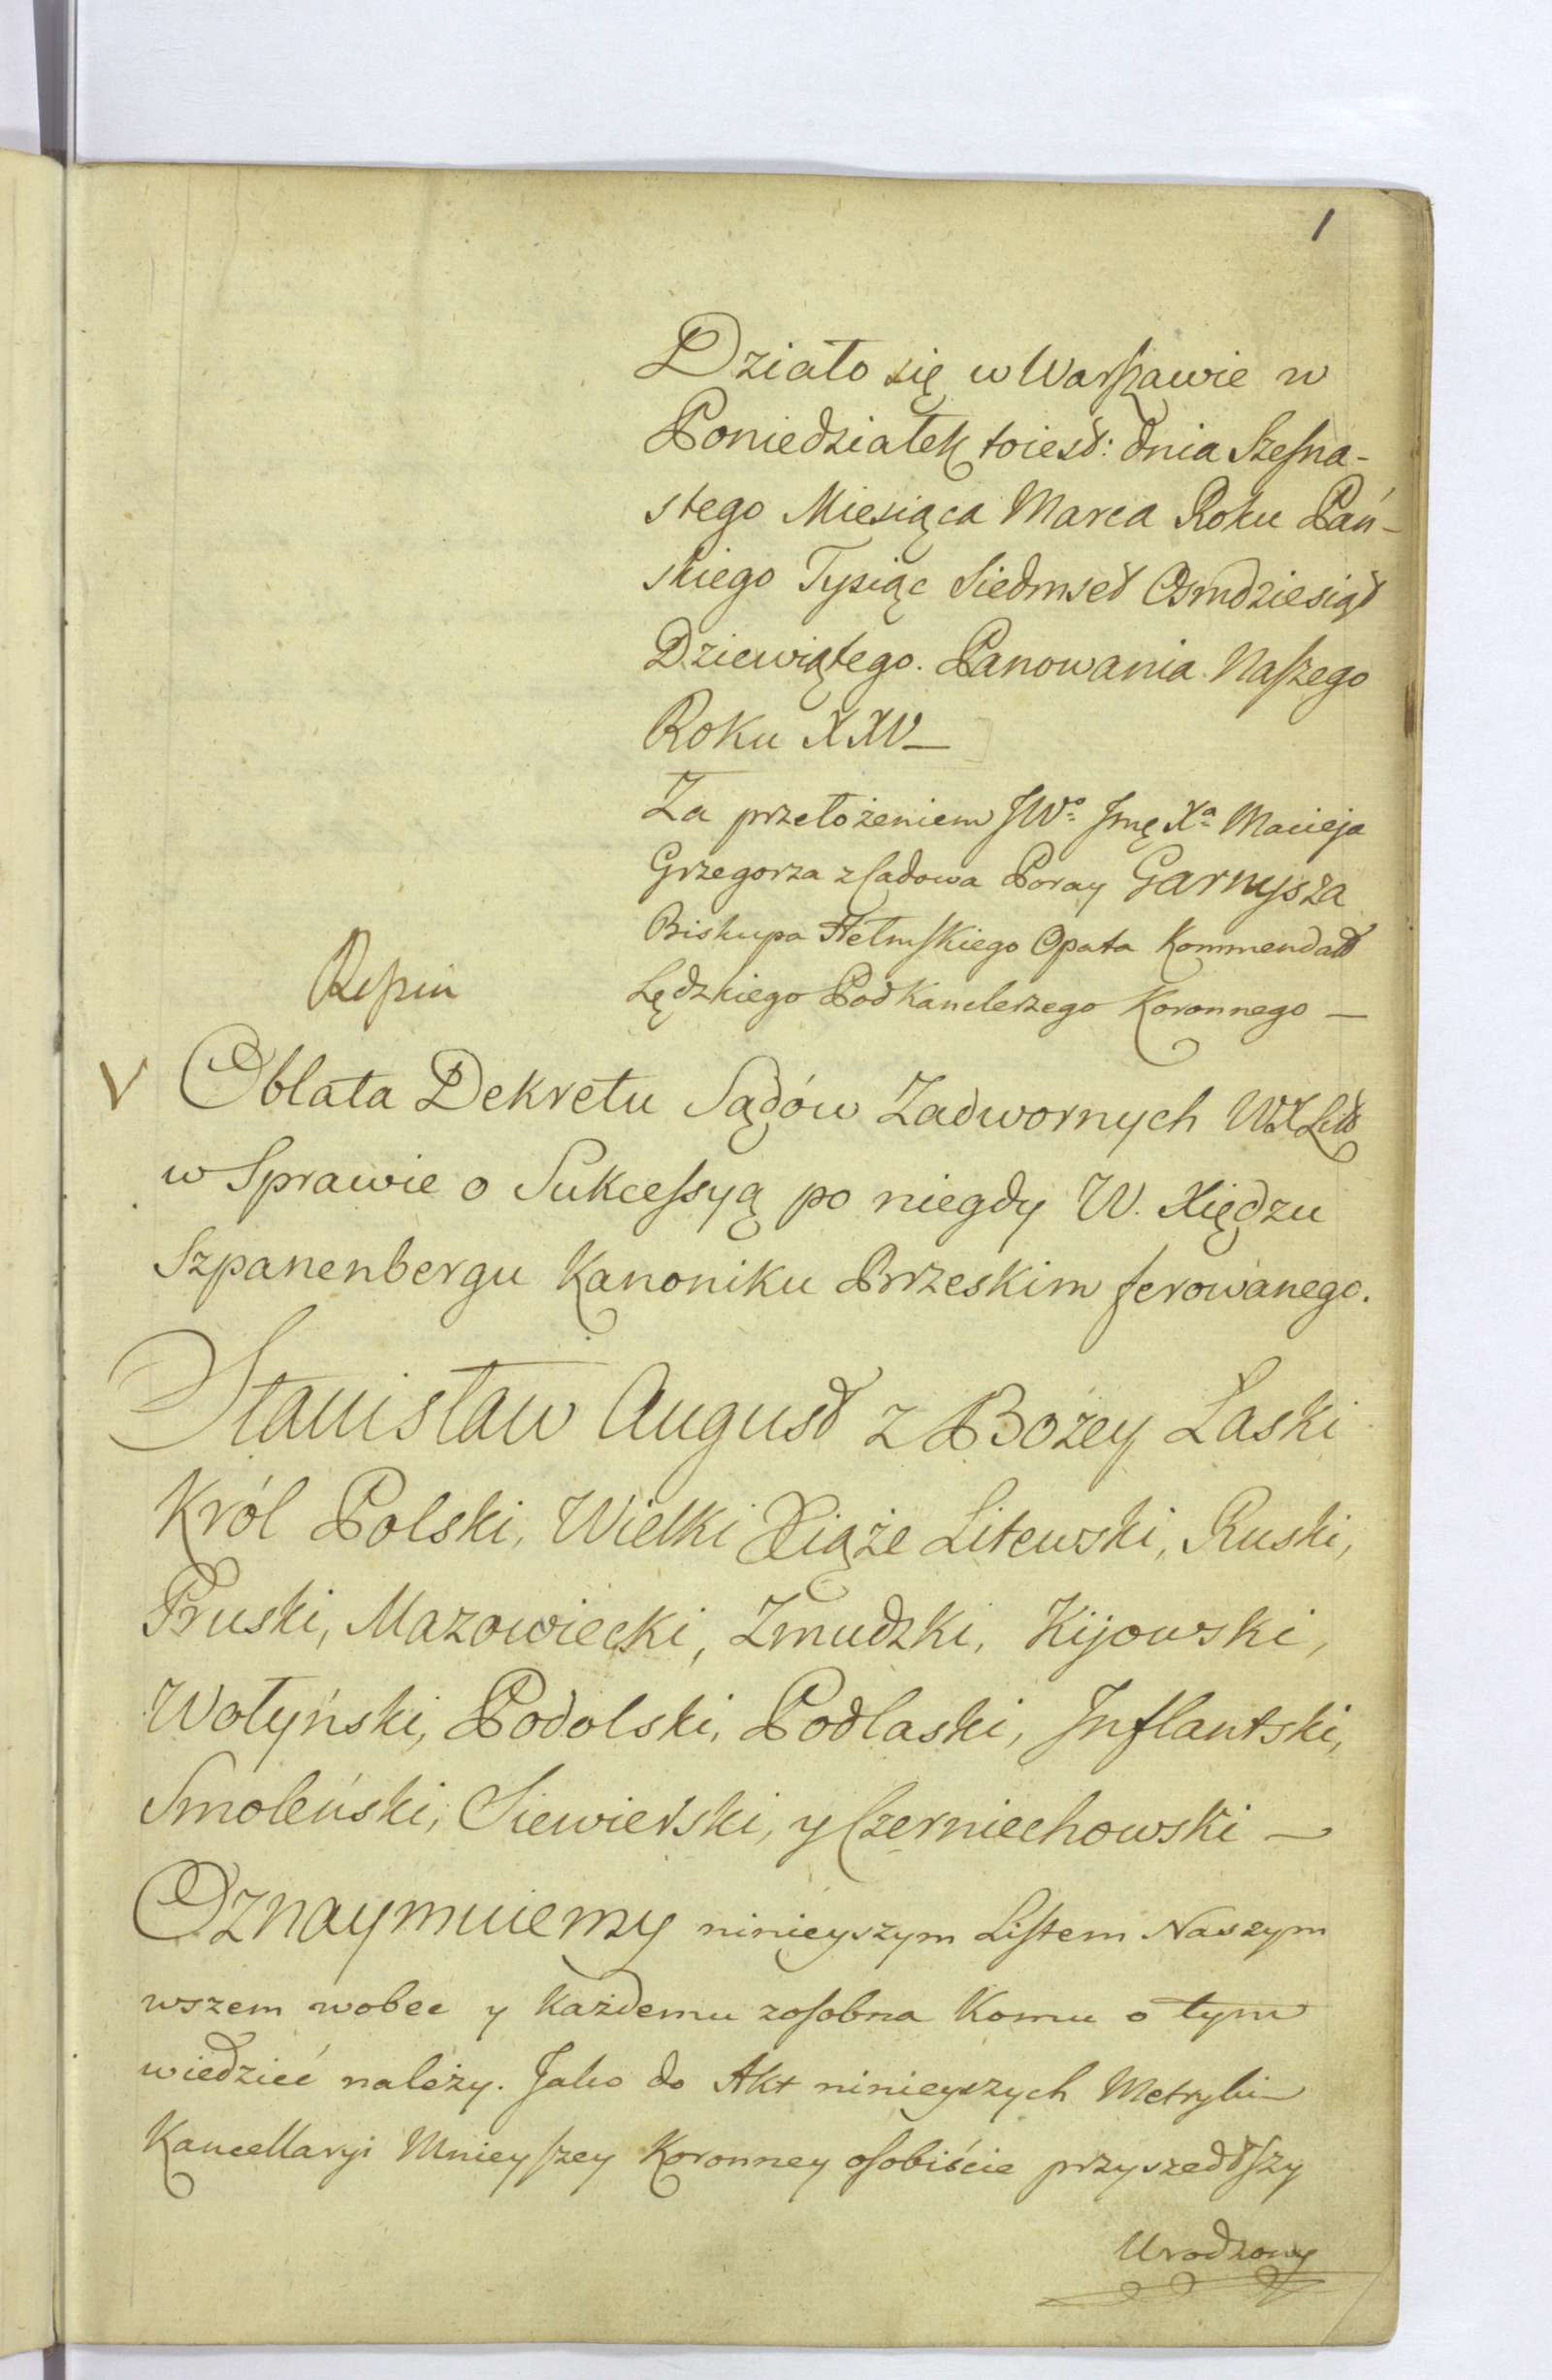 1
Działo się w Warszawie w
Poniedziałek toiest: dnia Szesna-
stego Miesiąca Marca Roku Pań-
skiego Tysiąc Siedmset Osmdziesiąt
Dziewiątego. Panowania Naszego
Roku XXV_
Za przełożeniem JWo Jmę Xa Macieja
Grzegorza z Radowa Poray Garnysza
Biskupa Hełmskiego Opata Kommendatt
Lędzkiego Podkanclerzego Koronnego —
V Oblata Dekretu Sądów Zadwornych WXLitt
w Sprawie o Sukcessyą po niegdy W. Xiędzu
Szpanenbergu Kanoniku Brzeskim ferowanego.
Stanisław August z Bożey Łaski
Król Polski, Wielki Xiąże Litewski, Ruski,
Pruski, Mazowiecki, Zmudzki, Kijowski,
Wołyński, Podolski, Podlaski, Inflantski,
Smoleński, Siewierski, y Czerniechowski —
Oznaymuiemy ninieyszym Listem Naszym
wszem wobec y każdemu zosobna komu o tym
wiedzieć należy. Jako do Akt ninieyszych Metryki
Kancellaryi Mnieyszey Koronney osobiście przyszedłszy
Urodzony